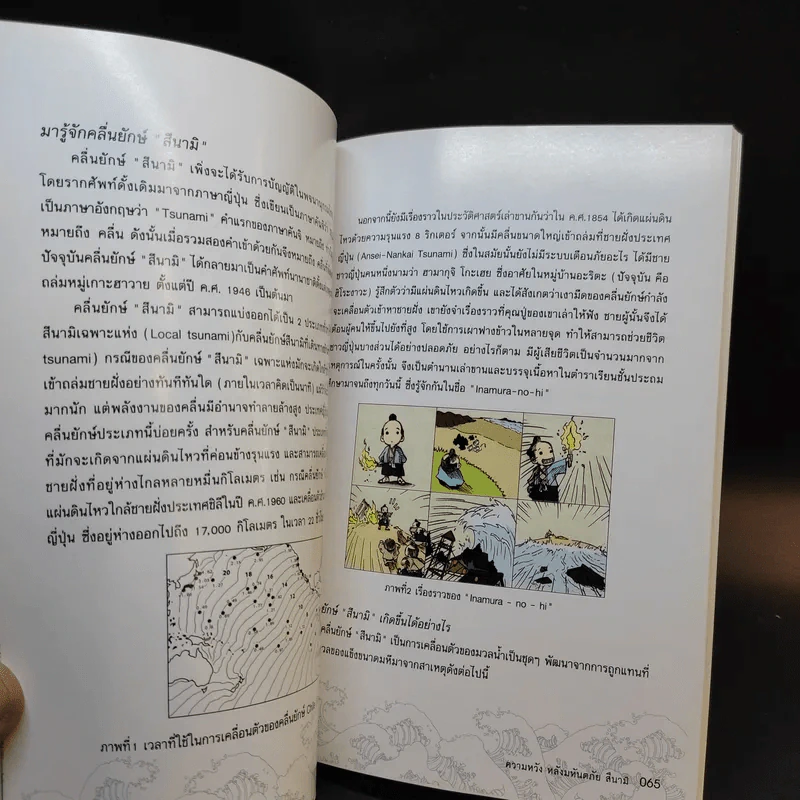 มารู้จักคลื่นยักษ์ "สึนามิ"
คลื่นยักษ์ "สึนามิ" เพิ่งจะได้รับการบัญญัติใน
โดยรากศัพท์ดั้งเดิมมาจากภาษาญี่ปุ่น ซึ่งเขียนเป็นภาษาคันจิ
เป็นภาษาอังกฤษว่า "Tsunami" คำแรกของภาษาคันจิ หมายถึง
หมายถึง คลื่น ดังนั้นเมื่อรวมสองคำเข้าด้วยกันจึงหมายถึง
ปัจจุบันคลื่นยักษ์ "สึนามิ" ได้กลายมาเป็นคำศัพท์นานาชาติตั้งแต่
ถล่มหมู่เกาะฮาวาย ตั้งแต่ปี ค.ศ. 1946 เป็นต้นมา
คลื่นยักษ์ "สึนามิ" สามารถแบ่งออกได้เป็น 2 ประเภท
สึนามิเฉพาะแห่ง (Local tsunami)กับคลื่นยักษ์สึนามิที่เดินทาง
tsunami) กรณีของคลื่นยักษ์ "สึนามิ" เฉพาะแห่งมักจะเกิด
เข้าถล่มชายฝั่งอย่างทันทีทันใด (ภายในเวลาคิดเป็นนาที)
มากนัก แต่พลังงานของคลื่นมีอำนาจทำลายล้างสูง ประเทศ
คลื่นยักษ์ประเภทนี้บ่อยครั้ง สำหรับคลื่นยักษ์ "สึนามิ"
ที่มักจะเกิดจากแผ่นดินไหวที่ค่อนข้างรุนแรง และสามารถ
ชายฝั่งที่อยู่ห่างไกลหลายหมื่นกิโลเมตร เช่น กรณีคลื่นยักษ์
แผ่นดินไหวใกล้ชายฝั่งประเทศชิลีในปี ค.ศ.1960 และเคลื่อนตัว
ญี่ปุ่น ซึ่งอยู่ห่างออกไปถึง 17,000 กิโลเมตร ในเวลา 22
ภาพที่1 เวลาที่ใช้ในการเคลื่อนตัวของคลื่นยักษ์
นอกจากนี้ยังมีเรื่องราวในประวัติศาสตร์เล่าขานกันว่าใน ค.ศ.1854 ได้เกิดแผ่นดิน
ไหวด้วยความรุนแรง 8 ริกเตอร์ จากนั้นมีคลื่นขนาดใหญ่เข้าถล่มที่ชายฝั่งประเทศ
(Ansei-Nankai Tsunami) ซึ่งในสมัยนั้นยังไม่มีระบบเตือนภัยอะไร ได้มีชาย
ชาวญี่ปุ่นคนหนึ่งนามว่า ฮามากุจิ โกะเฮย ซึ่งอาศัยในหมู่บ้านอะริตะ (ปัจจุบัน คือ
ฮิโระงาวะ) รู้สึกตัวว่ามีแผ่นดินไหวเกิดขึ้น และได้สังเกตว่าเงามืดของคลื่นยักษ์กำลัง
จะเคลื่อนตัวเข้าหาชายฝั่ง เขายังจำเรื่องราวที่คุณปู่ของเขาเล่าให้ฟัง ชายผู้นั้นจึงได้
เตือนผู้คนให้ขึ้นไปยังที่สูง โดยใช้การเผาฟางข้าวในหลายจุด ทำให้สามารถช่วยชีวิต
ชาวญี่ปุ่นบางส่วนได้อย่างปลอดภัย อย่างไรก็ตาม มีผู้เสียชีวิตเป็นจำนวนมากจาก
เหตุการณ์ในครั้งนั้น จึงเป็นตำนานเล่าขานและบรรจุเนื้อหาในตำราเรียนชั้นประถม
ศึกษามาจนถึงทุกวันนี้ ซึ่งรู้จักกันในชื่อ "Inamura-no-hi"
ภาพที่2 เรื่องราวของ "Inamura - no - hi"
ยักษ์ "สึนามิ" เกิดขึ้นได้อย่างไร
คลื่นยักษ์ "สึนามิ" เป็นการเคลื่อนตัวของมวลน้ำเป็นชุดๆ พัฒนาจากการถูกแทนที่
ของแข็งขนาดมหึมาจากสาเหตุดังต่อไปนี้
ความหวัง หลังมหันตภัย สึนามิ 065